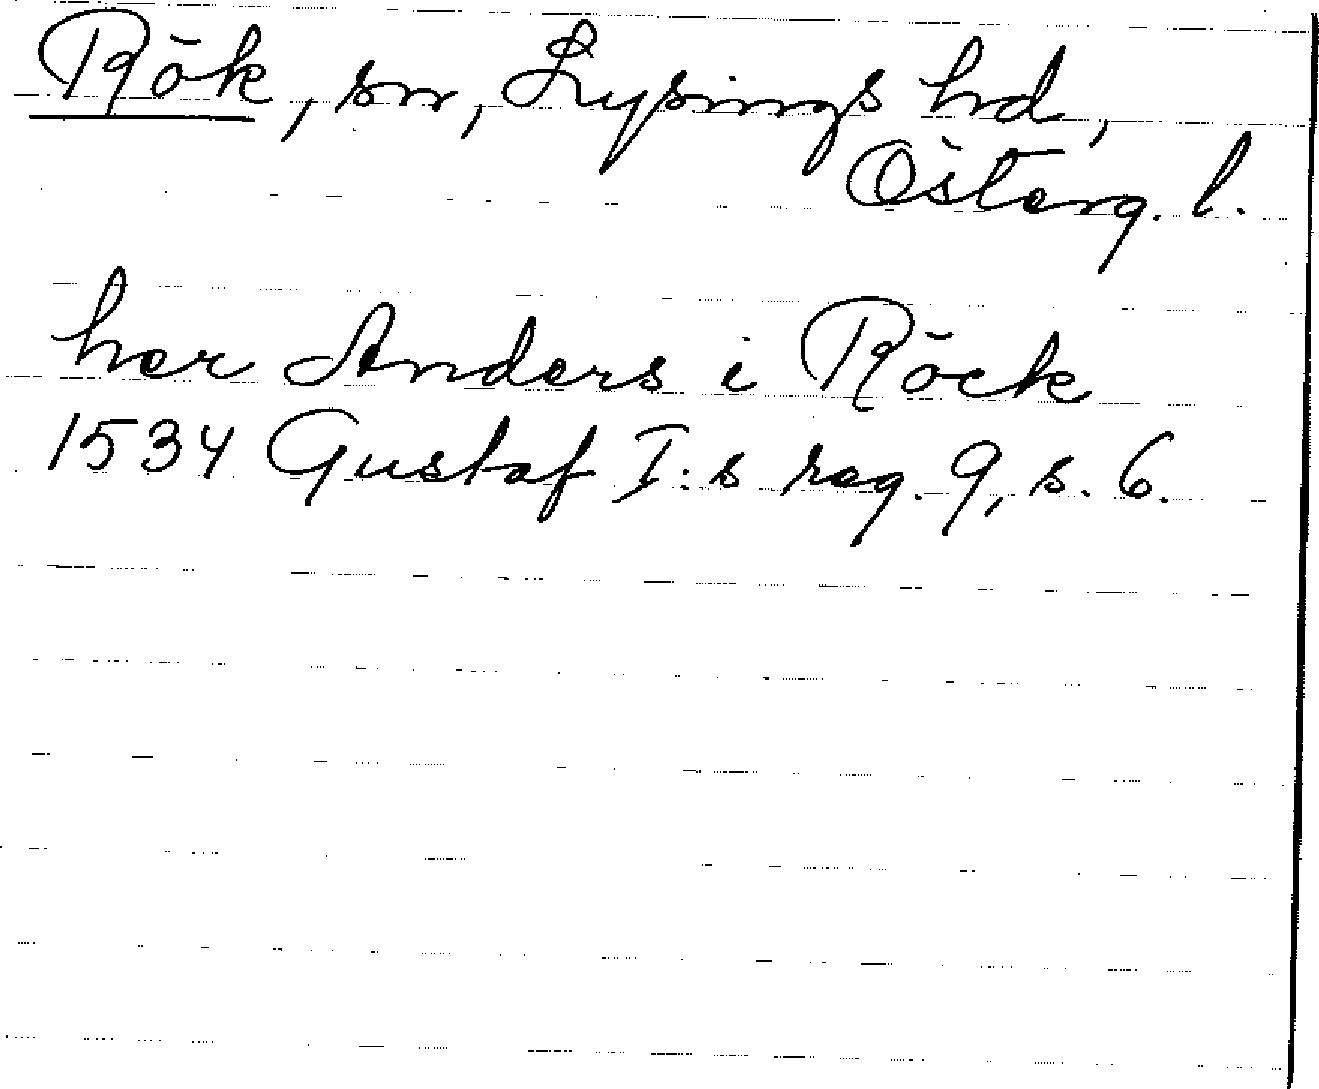 Rök, sn, Lysings hd,
Österg. l.
her Anders i Röck
1534 Gustaf I:s reg. 9, s. 6.